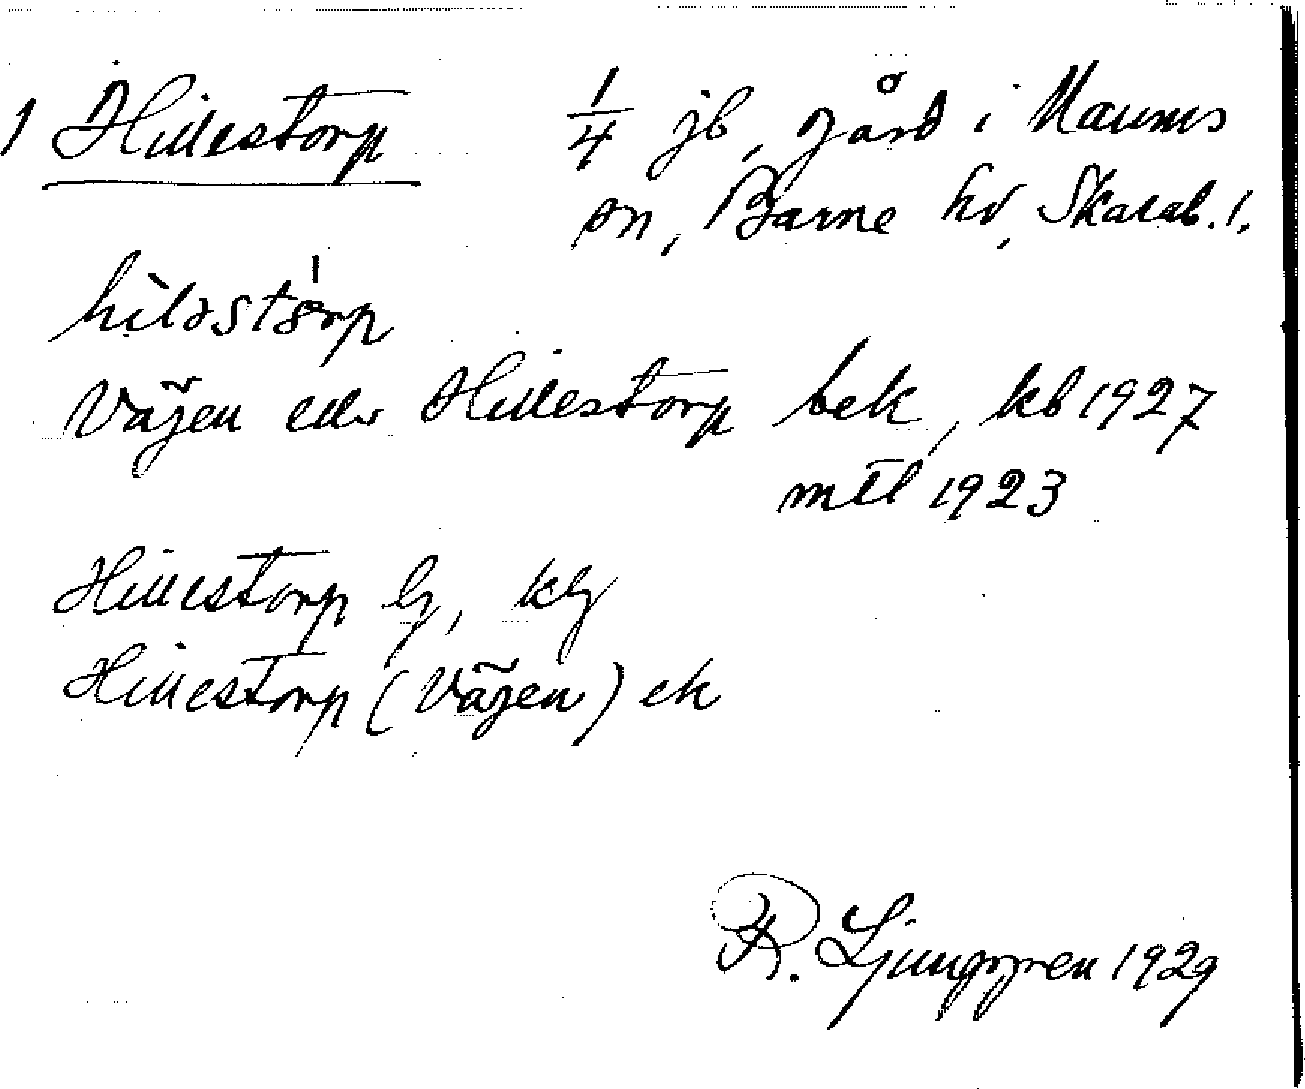 1 Hillestorp 1/4 jb, gård i Naums
sn, Barne hd, Skarab. l.
hìləstörp
Vägen eller Hillestorp bek, kb 1927
mtl 1923
Hillestorp Gj, kg
Hillestorp (Vägen) ek
R. Ljunggren 1929